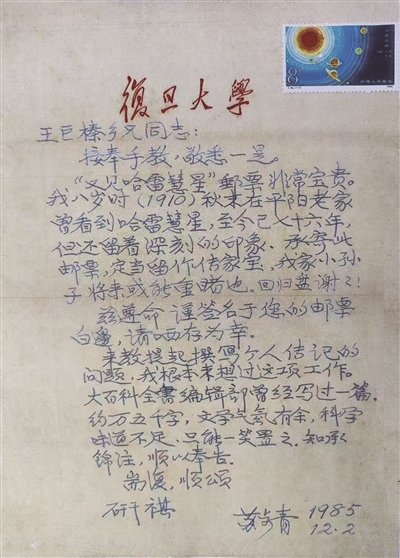 8
復旦大學
王巨榛乡兄同志:
接奉手教,敬悉一是。
"又见哈雷慧星"邮票非常宝贵。
我八岁时(1910)秋末在平阳老家
曾看到哈雷慧星,至今已七十六年,
但还留着深刻的印象。承寄此
邮票,定当留作传家宝,我家小孙
子将来或能重睹也。回归兹谢之!
兹尊命谨签名于您的邮票
白边,请哂存为幸。
来教提起撰写个人传记的
问题,我根本未想过这项工作。
大百科全書编辑部曾经写过一篇,
约万五千字,文学气氛有余,科学
味道不足,只能一笑置之。知承
锦注,顺以奉告。
耑復,顺颂
研祺
苏步青 1985
12.2